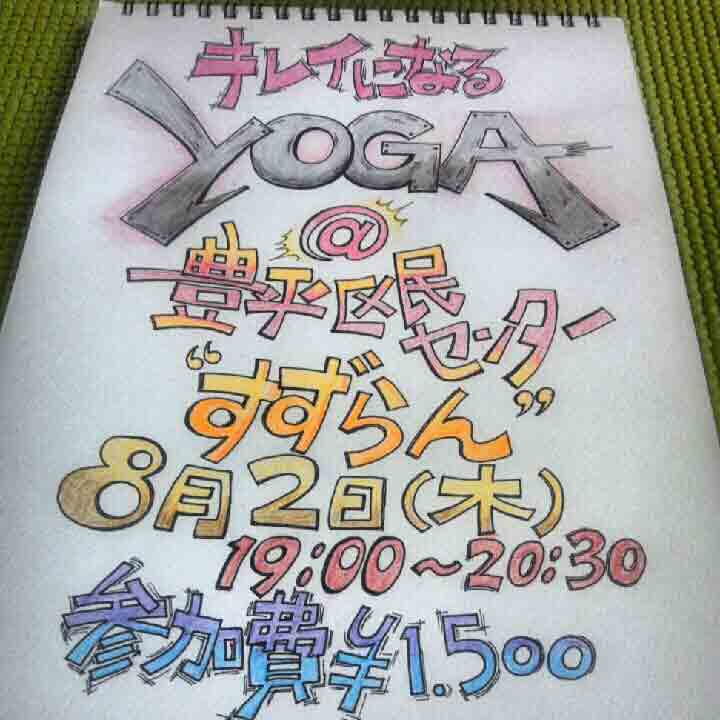 キレイになる
YOGA
@
豊平区民
センター
“すずらん”
8月2日(木)
19:00～20:30
参加費¥1.500